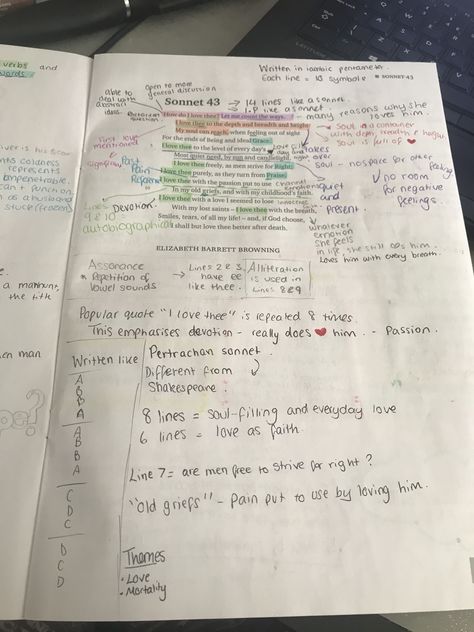 verbs and
words
Written in iambic pentameter.
Each line = 10 symbols
SONNET 43
able to
deal with
abstract
ideas.
open to more
general discussion
Sonnet 43
→ 14 lines like a sonnet.
I.P like a sonnet.
Rhetorical
question
How do I love thee? Let me count the ways.
- many reasons why she
loves him.
I love thee to the depth and breadth and height
My soul can reach, when feeling out of sight
For the ends of Being and ideal Grace.
I love thee to the level of every day's
Most quiet need, by sun and candlelight.
I love thee freely, as men strive for Right;
I love thee purely, as they turn from Praise;
I love thee with the passion put to use
In my old griefs, and with my childhood's faith.
I love thee with a love I seemed to lose
With my lost saints – I love thee with the breath,
Smiles, tears, of all my life! – and, if God choose,
I shall but love thee better after death.
ELIZABETH BARRETT BROWNING
Soul is a container
with depth, breadth & height.
Soul is full of ❤
Love
takes
over
Soul - no space for other
feeling
no room
for negative
feelings.
First love
mentioned
Past
Pain
Lines
9 & 10 =
autobiographical
Devotion.
quiet
and
Present.
whatever
emotion
she feels
in life, she still
loves him.
Loves him with every breath.
represents
can't function
as a husband
Assonance
* Repetition of
vowel sounds
→ Lines 2 & 3
have ee
like thee.
Alliteration
is used in
Lines 8 & 9
the title
Popular quote "I love thee" is repeated 8 times
This emphasises devotion - really does ❤ him. - Passion.
man
Written like
Pertrachan sonnet.
Different from
Shakespeare.
A
B
B
A
A
B
B
A
C
D
C
D
C
D
8 lines = soul-filling and everyday love
6 lines = love as faith.
Line 7 = are men free to strive for right?
"old griefs" - Pain put to use by loving him.
Themes
• Love
• Mortality